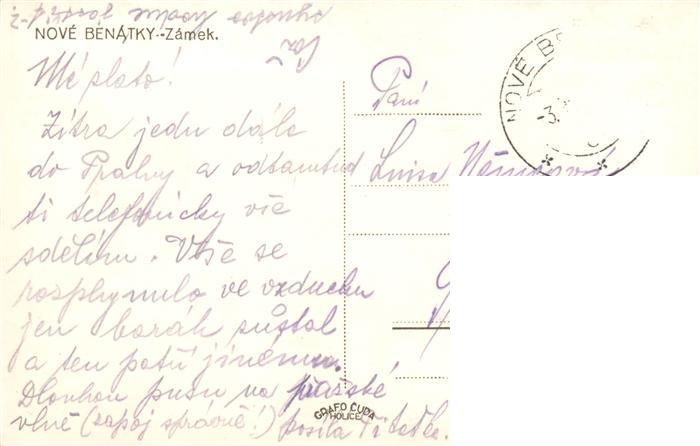 NOVÉ BENÁTKY--Zámek.
Mé zlato!
Zítra jedu dále
do Prahy a odtamtud
ti telefonicky vše
sdělím. Vše se
rozplynulo ve vzduchu
jen barák zůstal
a ten patří jinému.
Dlouhou pusu na pražské
vlně (zapoj správně!) posílá Ti
Paní
Luisa
NOVÉ BE
-3.
GRAFO ČUDA
HOLICE